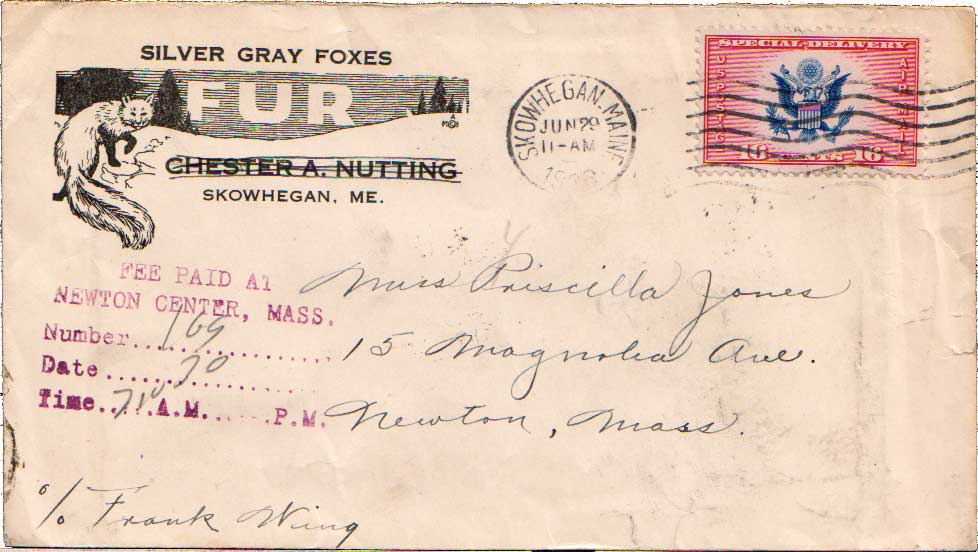 SILVER GRAY FOXES
FUR
CHESTER A. NUTTING
SKOWHEGAN, ME.
SKOWHEGAN, MAINE
JUN 29
11-AM
SPECIAL DELIVERY
U.S. POSTAGE
AIR MAIL
16 CENTS 16
FEE PAID AT
NEWTON CENTER, MASS.
Number 169
Date 30
Time 710 A.M. P.M.
Miss Priscilla Jones
15 Magnolia Ave.
Newton, Mass.
c/o Frank Wing